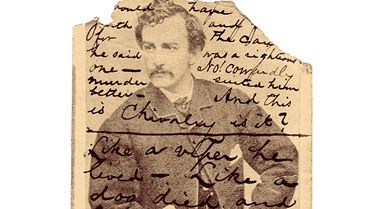 would have
forth and
for the Cau
he said was a righteous
one — No! Cowardly
murder suited him
better — And this
is Chivalry is it?
Like a viper he
lived — Like a
dog died and